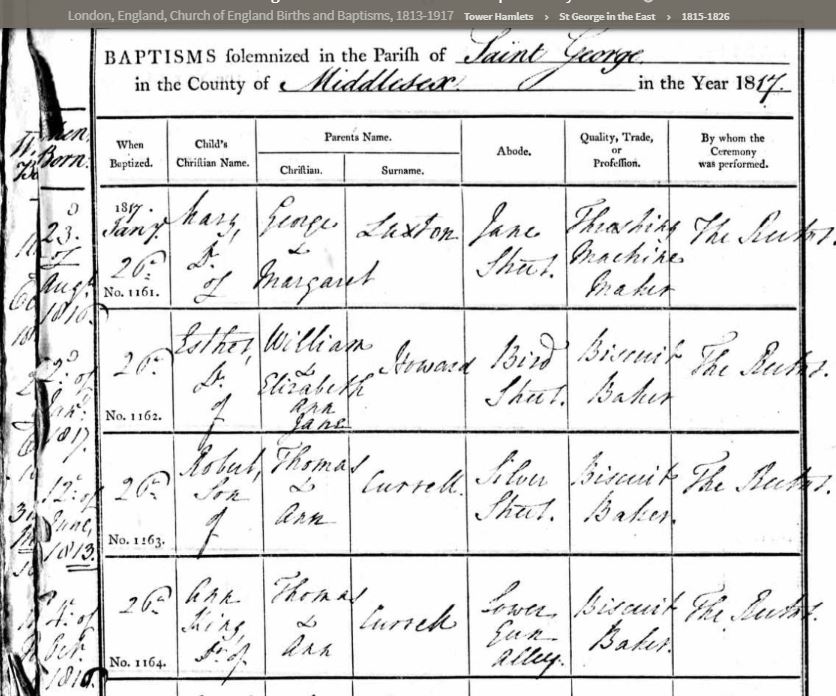 London, England, Church of England Births and Baptisms, 1813-1917 Tower Hamlets › St George in the East › 1815-1826
BAPTISMS solemnized in the Parish of Saint George
in the County of Middlesex in the Year 1817.
Born.
When Baptized.
Child's Christian Name.
Parents Name.
Christian.
Surname.
Abode.
Quality, Trade, or Profession.
By whom the Ceremony was performed.
23.
of
Augt
1816.
1817.
Jany
26th
No. 1161.
Mary,
Dr.
of
George
&
Margaret
Luxton
Jane
Street.
Thrashing
Machine
Maker
The Rector.
2d. of
1817.
26th
No. 1162.
Esther,
Dr.
of
William
&
Elizabeth
Ann
Jane
Howard
Bird
Street.
Biscuit
Baker
The Rector.
12th of
June,
1813.
26th
No. 1163.
Robert,
Son
of
Thomas
&
Ann
Currell.
Silver
Street.
Biscuit
Baker.
The Rector.
4th of
Octr.
1816.
26th
No. 1164.
Ann
King,
Dr. of
Thomas
&
Ann
Currell
Lower
Gun
Alley.
Biscuit
Baker.
The Rector.